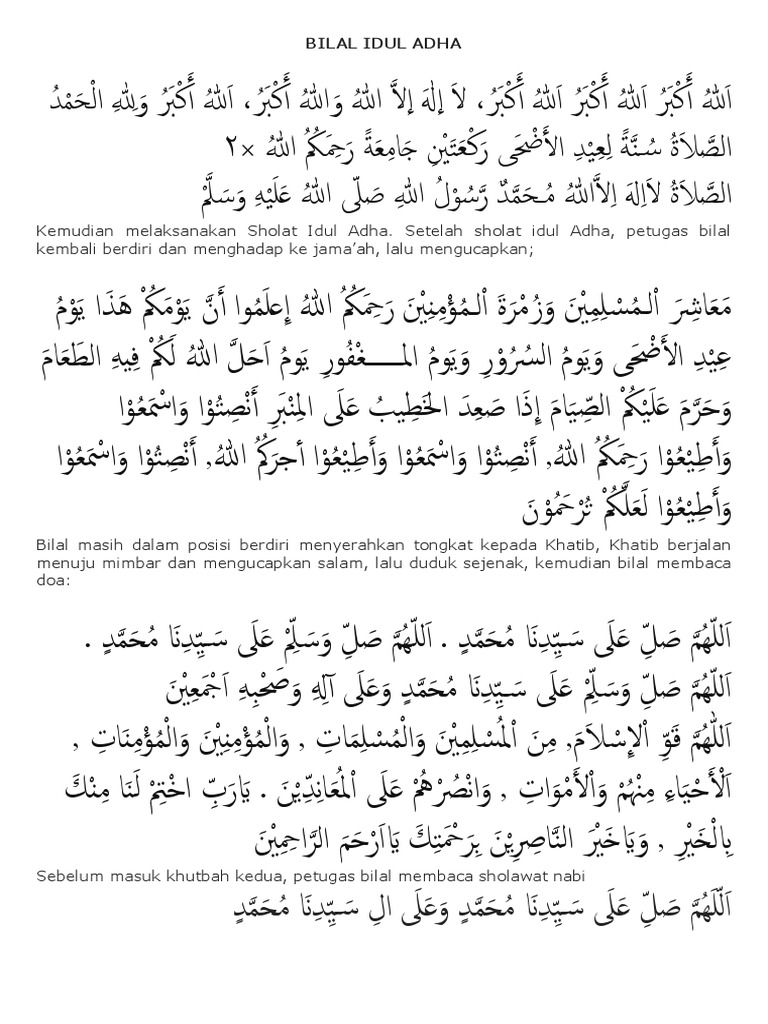 BILAL IDUL ADHA
اَللهُ أَكْبَرُ اَللهُ أَكْبَرُ اَللهُ أَكْبَرُ، لاَ إِلٰهَ إِلاَّ اللهُ وَاللهُ أَكْبَرُ، اَللهُ أَكْبَرُ وَلِلّٰهِ الْحَمْدُ
الصَّلاَةُ سُنَّةً لِعِيْدِ الأَضْحَى رَكْعَتَيْنِ جَامِعَةً رَحِمَكُمُ اللهُ ×٢
الصَّلاَةُ لاَاِلهَ اِلاَّاللهُ مُحَمَّدٌ رَّسُوْلُ اللهِ صَلّى اللهُ عَلَيْهِ وَسَلَّمْ
Kemudian melaksanakan Sholat Idul Adha. Setelah sholat idul Adha, petugas bilal
kembali berdiri dan menghadap ke jama’ah, lalu mengucapkan;
مَعَاشِرَ الْـمُسْلِمِيْنَ وَزُمْرَةَ الْـمُؤْمِنِيْنَ رَحِمَكُمُ اللهُ إِعلَمُوا أَنَّ يَوْمَكُمْ هَذَا يَوْمُ
عِيْدِ الأَضْحَى وَيَومُ السُرُوْرِ وَيَومُ المَـــــغْفُورِ يَومُ اَحَلَّ اللهُ لَكُمْ فِيهِ الطَعَامَ
وَحَرَّمَ عَلَيْكُمْ الصِّيَامَ إِذَا صَعِدَ الخَطِيبُ عَلَى المِنْبَرِ أَنْصِتُوْا وَاسْمَعُوْا
وَأَطِيْعُوْا رَحِمَكُمُ اللهُ, أَنْصِتُوْا وَاسْمَعُوْا وَأَطِيْعُوْا أجرَكُمُ اللهُ, أَنْصِتُوْا وَاسْمَعُوْا
وَأَطِيْعُوْا لَعَلَّكُمْ تُرْحَمُوْنَ
Bilal masih dalam posisi berdiri menyerahkan tongkat kepada Khatib, Khatib berjalan
menuju mimbar dan mengucapkan salam, lalu duduk sejenak, kemudian bilal membaca
doa:
اَللّهُمَّ صَلِّ عَلَى سَـيِّدِنَا مُحَمَّدٍ . اَللّهُمَّ صَلِّ وَسَلِّمْ عَلَى سَـيِّدِنَا مُحَمَّدٍ .
اَللّهُمَّ صَلِّ وَسَلِّمْ عَلَى سَـيِّدِنَا مُحَمَّدٍ وَعَلَى آلِهِ وَصَحْبِهِ اَجْمَعِيْنَ
اَللّٰهُمَّ قَوِّ اْلإِسْلاَمَ, مِنَ اْلمُسْلِمِيْنَ وَالْمُسْلِمَاتِ , وَالْمُؤْمِنِيْنَ وَالْمُؤْمِنَاتِ ,
اَلْأَحْيَاءِ مِنْهُمْ وَاْلأَمْوَاتِ , وَانْصُرْهُمْ عَلَى اْلمُعَانِدِّيْنَ . يَارَبِّ اخْتِمْ لَنَا مِنْكَ
بِالْخَيْرِ , وَيَاخَيْرَ النَّاصِرِيْنَ بِرَحْمَتِكَ يَااَرْحَمَ الرَّاحِمِيْنَ
Sebelum masuk khutbah kedua, petugas bilal membaca sholawat nabi
اَللّٰهُمَّ صَلِّ عَلَى سَـيِّدِنَا مُحَمَّدٍ وَعَلَى الِ سَـيِّدِنَا مُحَمَّدٍ